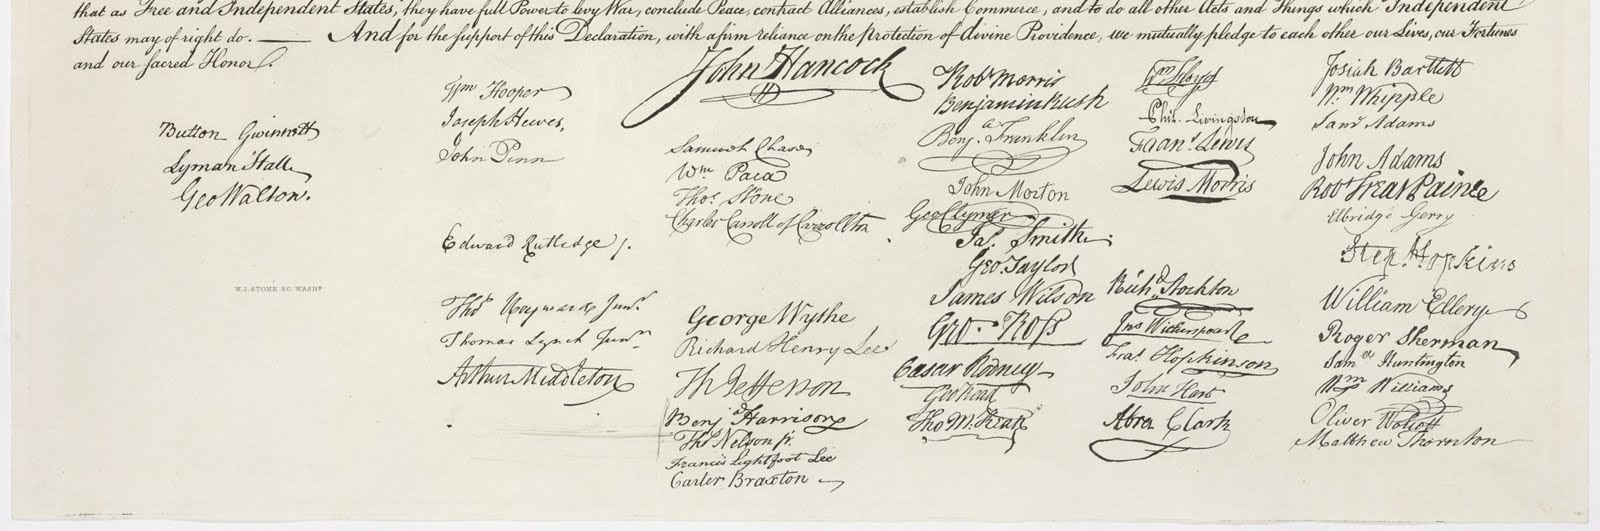 that as Free and Independent States, they have full Power to levy War, conclude Peace, contract Alliances, establish Commerce, and to do all other Acts and Things which Independent
States may of right do. — And for the support of this Declaration, with a firm reliance on the protection of divine Providence, we mutually pledge to each other our Lives, our Fortunes
and our sacred Honor.
Button Gwinnett
Lyman Hall
Geo Walton.
W. J. STONE SC. WASHN
Wm Hooper
Joseph Hewes,
John Penn
Edward Rutledge /.
Thos Heyward Junr.
Thomas Lynch Junr.
Arthur Middleton
John Hancock
Samuel Chase
Wm Paca
Thos. Stone
Charles Carroll of Carrollton
George Wythe
Richard Henry Lee
Th Jefferson
Benj Harrison
Thos Nelson jr.
Francis Lightfoot Lee
Carter Braxton
Robt Morris
Benjamin Rush
Benj. Franklin
John Morton
Geo Clymer
Jas. Smith.
Geo. Taylor
James Wilson
Geo. Ross
Caesar Rodney
Geo Read
Tho M:Kean
Wm Floyd
Phil. Livingston
Frans. Lewis
Lewis Morris
Richd. Stockton
Jno Witherspoon
Fras. Hopkinson
John Hart
Abra Clark
Josiah Bartlett
Wm. Whipple
Saml Adams
John Adams
Robt Treat Paine
Elbridge Gerry
Step. Hopkins
William Ellery
Roger Sherman
Samel Huntington
Wm Williams
Oliver Wolcott
Matthew Thornton